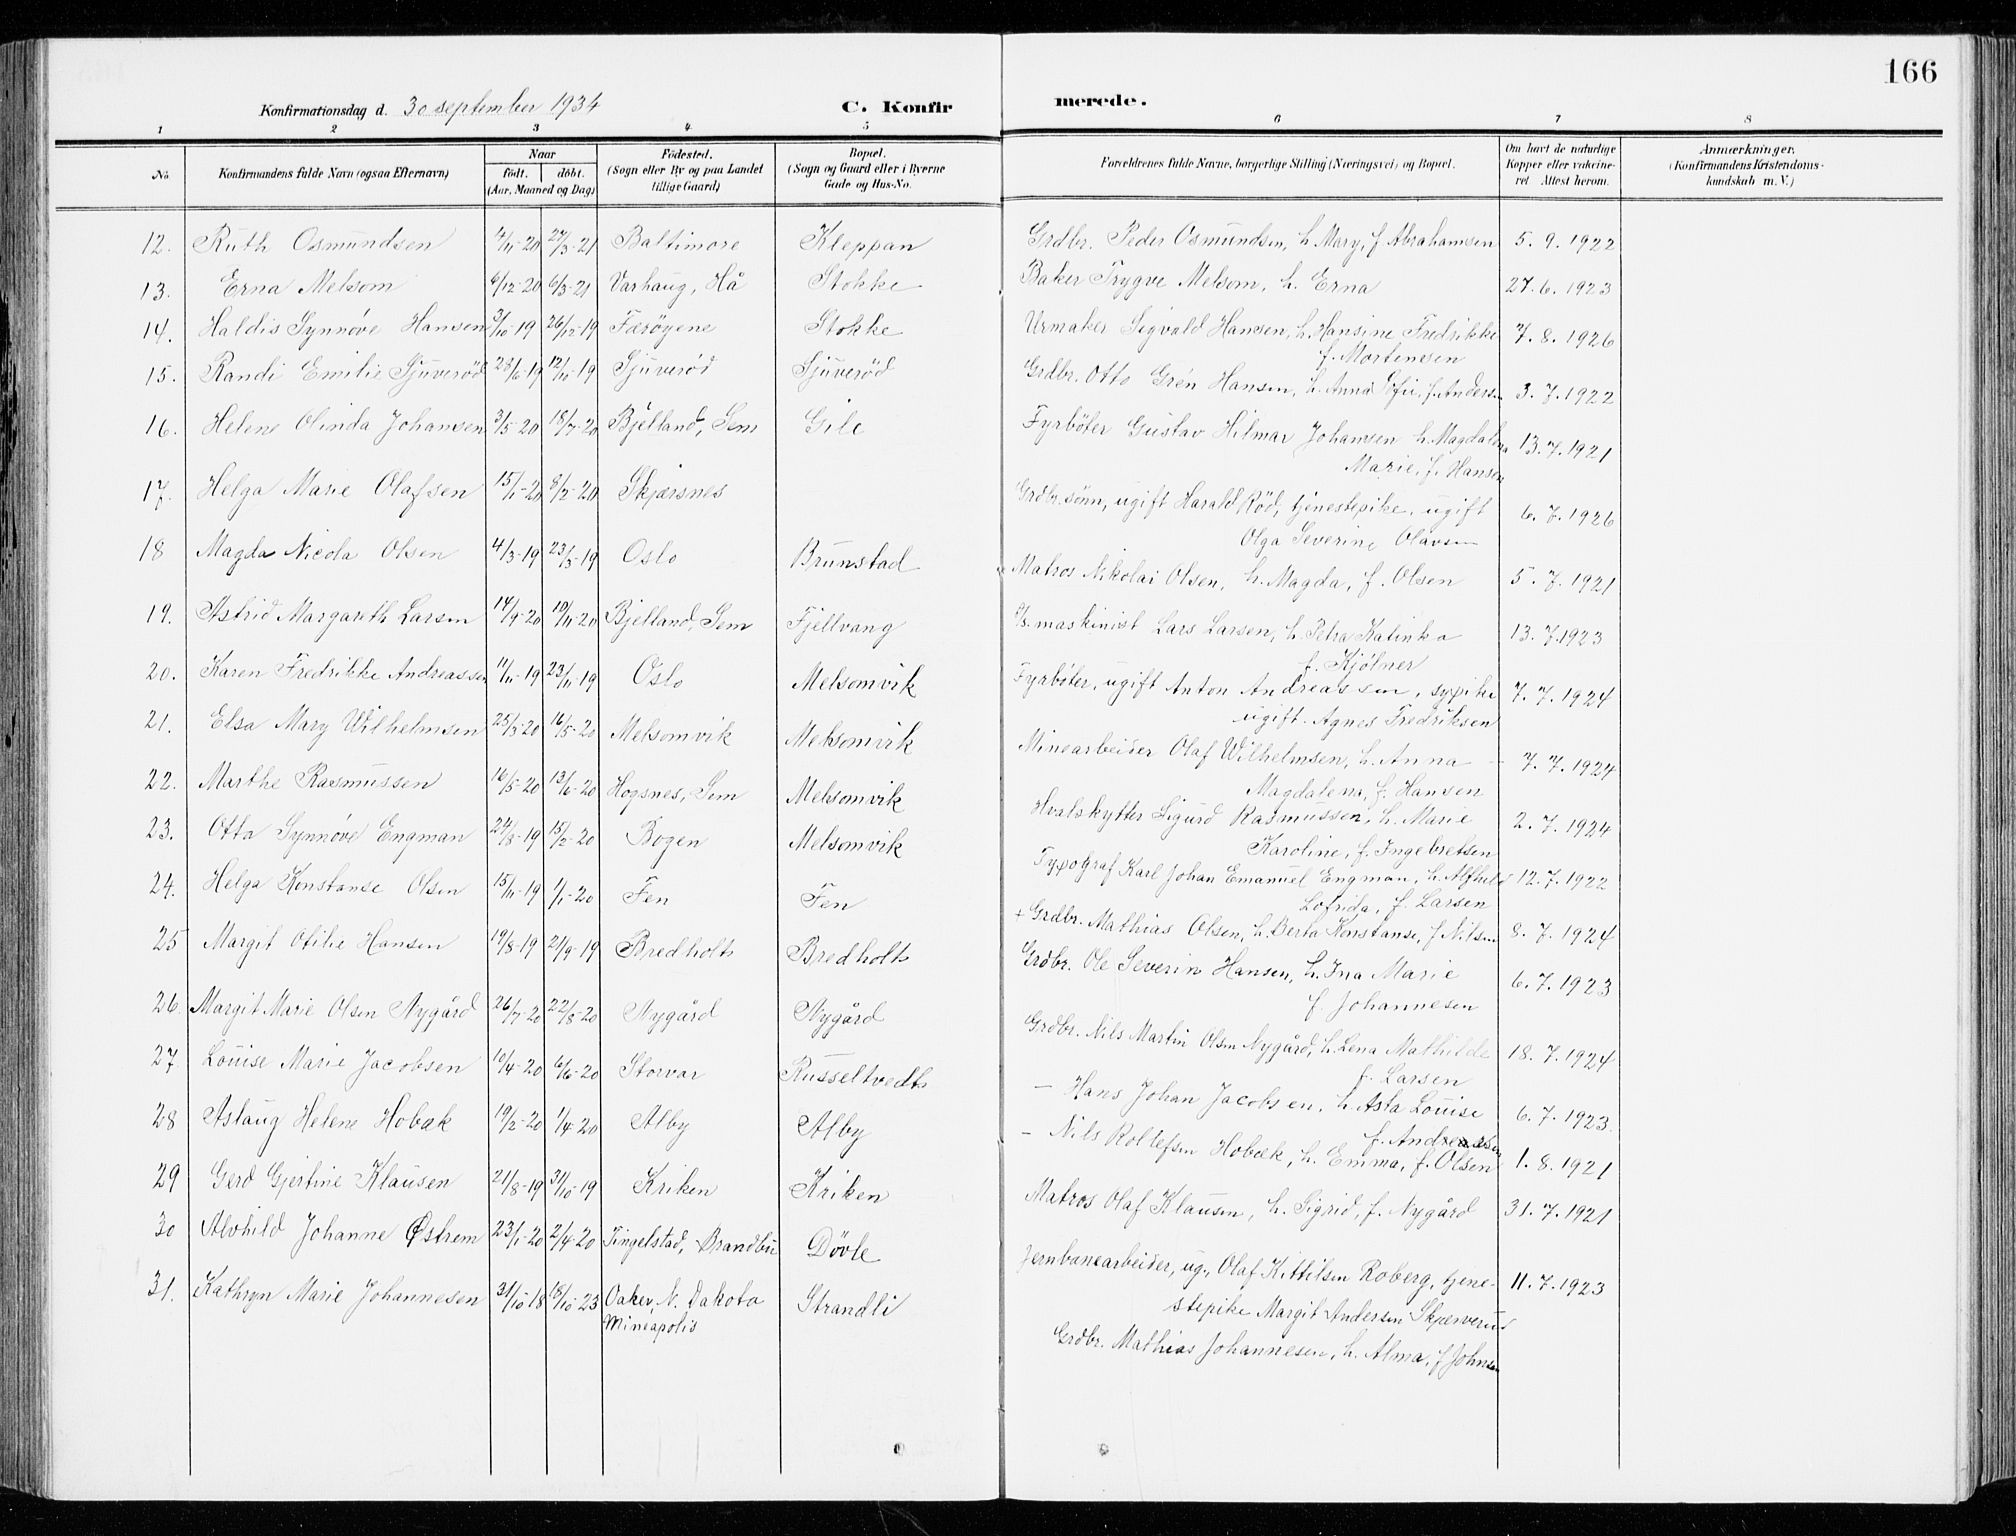 166
Konfirmationsdag d. 30 september 1934 C. Konfirmerede.
1 2 3 4 5 6 7 8
No. Konfirmandens fulde Navn (ogsaa Efternavn) Naar født. døbt. (Aar, Maaned og Dag) Fødested. (Sogn eller By og paa Landet tillige Gaard) Bopæl. (Sogn og Gaard eller i Byerne Gade og Hus-No. Forældrenes fulde Navne, borgerlige Stilling (Næringsvei) og Bopæl. Om havt de naturlige Kopper eller vakcineret Attest herom. Anmærkninger. (Konfirmandens Kristendomskundskab m. V.)
12. Ruth Osmundsen 4/11-20 27/3-21 Baltimore Kleppan Grdbr. Peder Osmundsen, h. Mary, f. Abrahamsen 5. 9. 1922
13. Erna Melsom 6/12-20 6/3-21 Varhaug, Hå Stokke Baker Trygve Melsom, h. Erna 27. 6. 1923
14. Haldis Synnøve Hansen 3/10-19 26/12-19 Færøyene Stokke Urmaker Sigvald Hansen, h. Hansine Fredrikke
f. Mortensen 7. 8. 1926
15. Randi Emilie Sjuverød 28/6-19 12/10-19 Sjuverød Sjuverød Grdbr. Otto Grén Hansen, h. Anna Sofie, f. Anders. 3. 7. 1922
16. Helene Olinda Johansen 3/5-20 18/7-20 Bjelland, Sem Gile Fyrbøter Gustav Hilmar Johansen h. Magdalena
Marie, f. Hansen 13. 7. 1921
17. Helga Marie Olafsen 15/1-20 8/2-20 Skjærsnes Grdbr. sønn, ugift Harald Rød, tjenestepike, ugift
Olga Severine Olavsen 6. 7. 1926
18 Magda Nicola Olsen 4/3-19 23/3-19 Oslo Brunstad Matros Nikolai Olsen, h. Magda, f. Olsen 5. 7. 1921
19. Astrid Margareth Larsen 14/9-20 10/11-20 Bjelland, Sem Fjellvang maskinist Lars Larsen, h. Petra Katinka
f. Kjølner 13. 7. 1923
20. Karen Fredrikke Andreassen 11/11-19 23/11-19 Oslo Melsomvik Fyrbøter, ugift Anton Andreassen, sypike
ugift. Agnes Fredriksen 7. 7. 1924
21. Elsa Mary Wilhelmsen 25/3-20 16/5-20 Melsomvik Melsomvik Minearbeider Olaf Wilhelmsen, h. Anna
Magdalena, f. Hansen 7. 7. 1924
22. Marthe Rasmussen 16/5-20 13/6-20 Hogsnes, Sem Melsomvik Hvalskytter Sigurd Rasmussen, h. Marie
Karoline, f. Ingebretsen 2. 7. 1924
23. Otta Synnøve Engman 24/8-19 15/2-20 Bogen Melsomvik Typograf Karl Johan Emanuel Engman, h. Alfhild
Lofrida, f. Larsen 12. 7. 1922
24. Helga Konstanse Olsen 15/11-19 1/1-20 Fen Fen + Grdbr. Mathias Olsen, h. Berta Konstanse, f. Nilsen 8. 7. 1924
25 Margit Otilie Hansen 19/8-19 21/9-19 Bredholt Bredholt Grdbr. Ole Severin Hansen, h. Ina Marie
f. Johannesen 6. 7. 1923
26. Margit Marie Olsen Nygård 26/7-20 22/8-20 Nygård Nygård Grdbr. Nils Martin Olsen Nygård, h. Lena Mathilde
f. Larsen 18. 7. 1924
27. Louise Marie Jacobsen 10/4-20 6/6-20 Storvar Russeltvedt — Hans Johan Jacobsen, h. Asta Louise
f. Andreassen 6. 7. 1923.
28 Aslaug Helene Hobæk 19/2-20 1/4-20 Alby Alby — Nils Rollefsen Hobæk, h. Emma, f. Olsen 1. 8. 1921
29 Gerd Gjertine Klausen 21/8-19 31/10-19 Kriken Kriken Matros Olaf Klausen, h. Sigrid, f. Nygård 31. 7. 1921
30 Alvhild Johanne Østrem 23/1-20 2/4-20 Tingelstad, Brandbu Døvle Jernbanearbeider, ug., Olaf Kittilsen Roberg, tjene-
stepike Margit Andersen Skjærverud 11. 7. 1923
31. Kathryn Marie Johannesen 31/10-18 18/10-23 Oaker, N. Dakota
Mineapolis Strandli Grdbr. Mathias Johannesen, h. Alma, f. Johnsen